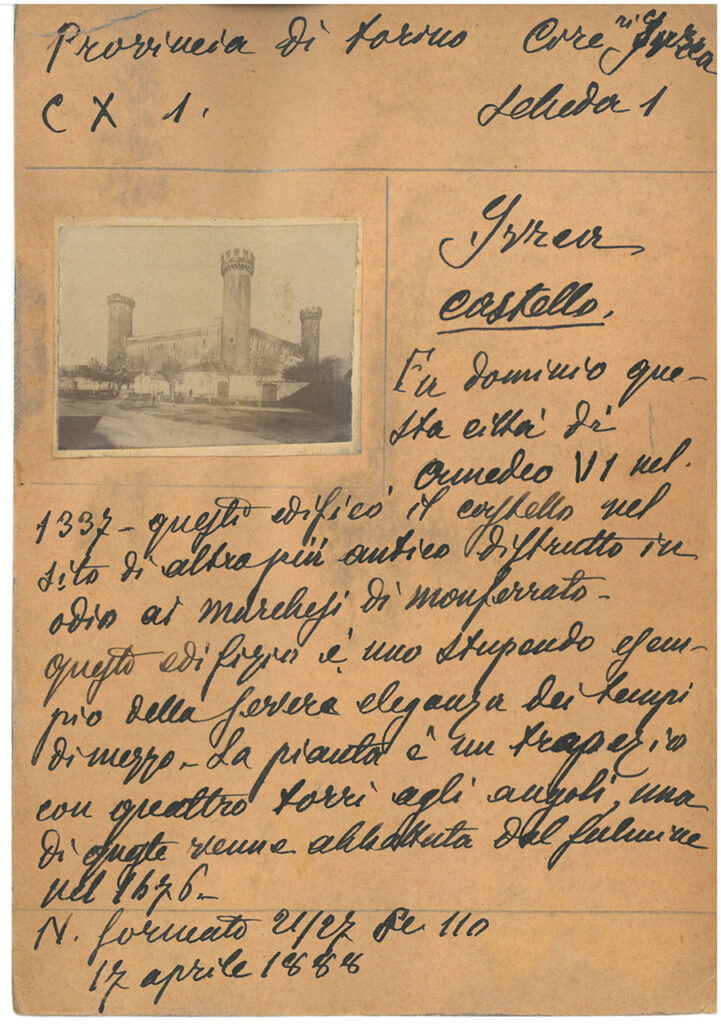 Provincia di Torino Circ.ri Ivrea
C X 1. Scheda 1
Yvrea
Castello.
Fu dominio que-
sta città di
Amedeo VI nel.
1337 - questi edificò il castello nel
sito di altro più antico distrutto in
odio ai Marchesi di Monferrato -
questo edifizio è uno stupendo esem-
pio della severa eleganza dei tempi
di mezzo - La pianta è un trapezio
con quattro torri agli angoli, una
di queste venne abbattuta dal fulmine
nel 1676 -
N. formato 21/27 110
17 aprile 1888